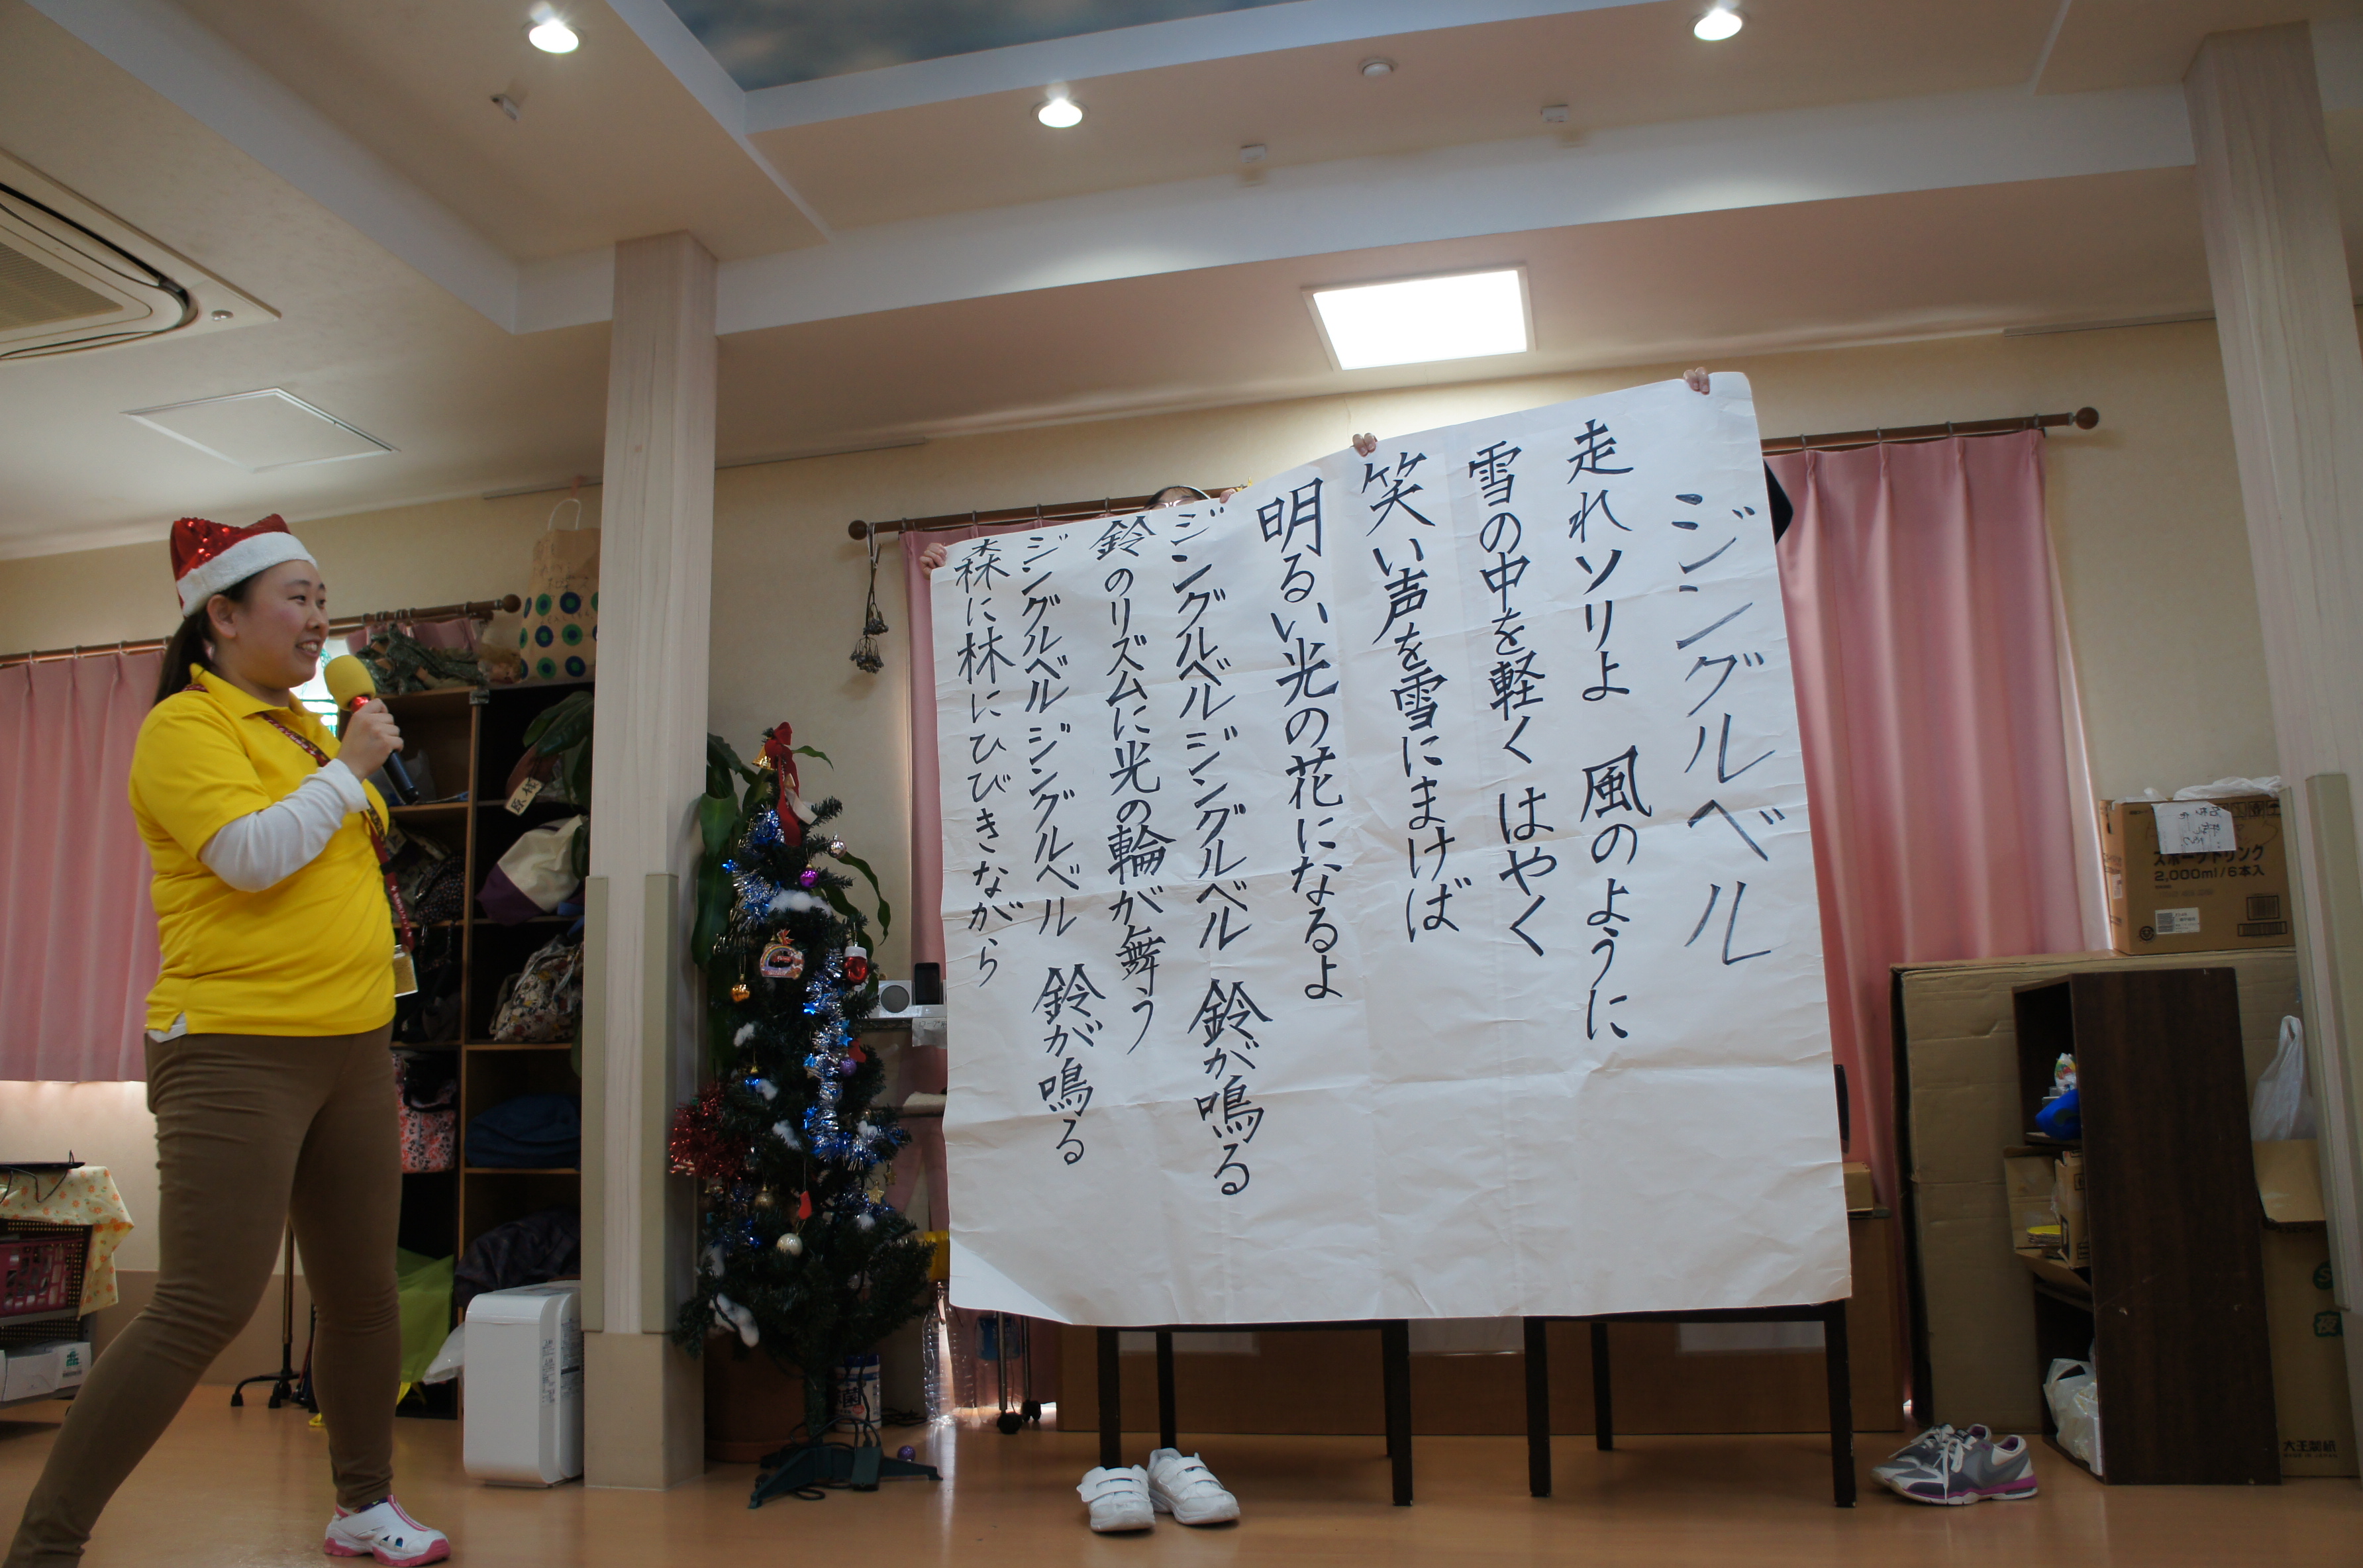 ジングルベル
走れソリよ 風のように
雪の中を軽くはやく
笑い声を雪にまけば
明るい光の花になるよ
ジングルベルジングルベル 鈴が鳴る
鈴のリズムに光の輪が舞う
ジングルベルジングルベル 鈴が鳴る
森に林にひびきながら
スポーツドリンク
2,000ml/6本入
大王製紙